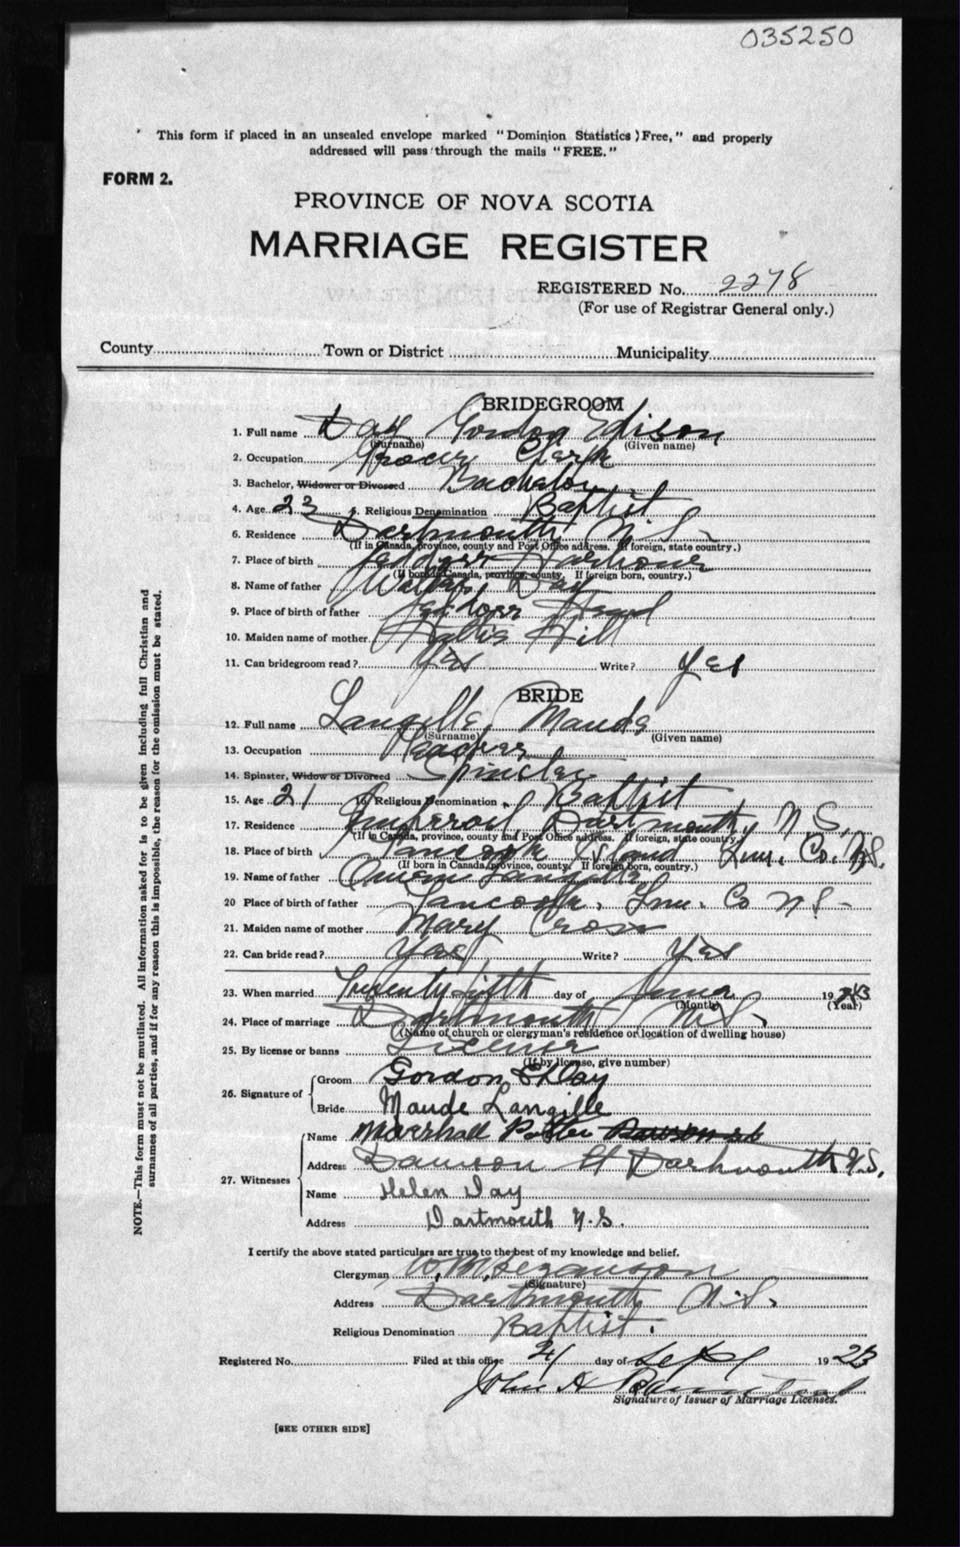 035250
This form if placed in an unsealed envelope marked "Dominion Statistics) Free," and properly
addressed will pass through the mails "FREE."
FORM 2.
PROVINCE OF NOVA SCOTIA
MARRIAGE REGISTER
REGISTERED No. 2278
(For use of Registrar General only.)
County Town or District Municipality
BRIDEGROOM
1. Full name Day Gordon Edison
(Surname) (Given name)
2. Occupation Grocery Clerk
3. Bachelor, Widower or Divosed Bachelor
4. Age 23 5. Religious Denomination Baptist
6. Residence Dartmouth N.S.
(If in Canada, province, county and Post Office address. If foreign, state country.)
7. Place of birth Jeddore Harbour
(If born in Canada, province, county. If foreign born, country.)
8. Name of father Walter Day
9. Place of birth of father Jeddore
10. Maiden name of mother Hill
11. Can bridegroom read? Yes Write? Yes
BRIDE
12. Full name Langille, Maude
(Surname) (Given name)
13. Occupation
14. Spinster, Widow or Divorced Spinster
15. Age 21 16. Religious Denomination Baptist
17. Residence Imperoyl Dartmouth, N.S.
(If in Canada, province, county and Post Office address. If foreign, state country.)
18. Place of birth Tancook Island Lun. Co. N.S.
(If born in Canada, province, county. If foreign born, country.)
19. Name of father Langille
20 Place of birth of father Tancook, Lun. Co N.S.
21. Maiden name of mother Mary Cross
22. Can bride read? Yes Write? Yes
23. When married Twenty fifth day of June 1923
(Month) (Year)
24. Place of marriage Dartmouth N.S.
(Name of church or clergyman's residence or location of dwelling house)
25. By license or banns License
(If by license, give number)
26. Signature of Groom Gordon E Day
Bride Maude Langille
27. Witnesses Name Marshall
Address Dawson St Dartmouth N.S.
Name Helen Day
Address Dartmouth N.S.
I certify the above stated particulars are true to the best of my knowledge and belief.
Clergyman
(Signature)
Address Dartmouth N.S.
Religious Denomination Baptist.
Registered No. Filed at this office day of Sept 1923
John A
Signature of Issuer of Marriage Licenses.
[SEE OTHER SIDE]
NOTE.—This form must not be mutilated. All information asked for is to be given including full Christian and
surnames of all parties, and if for any reason this is impossible, the reason for the omission must be stated.